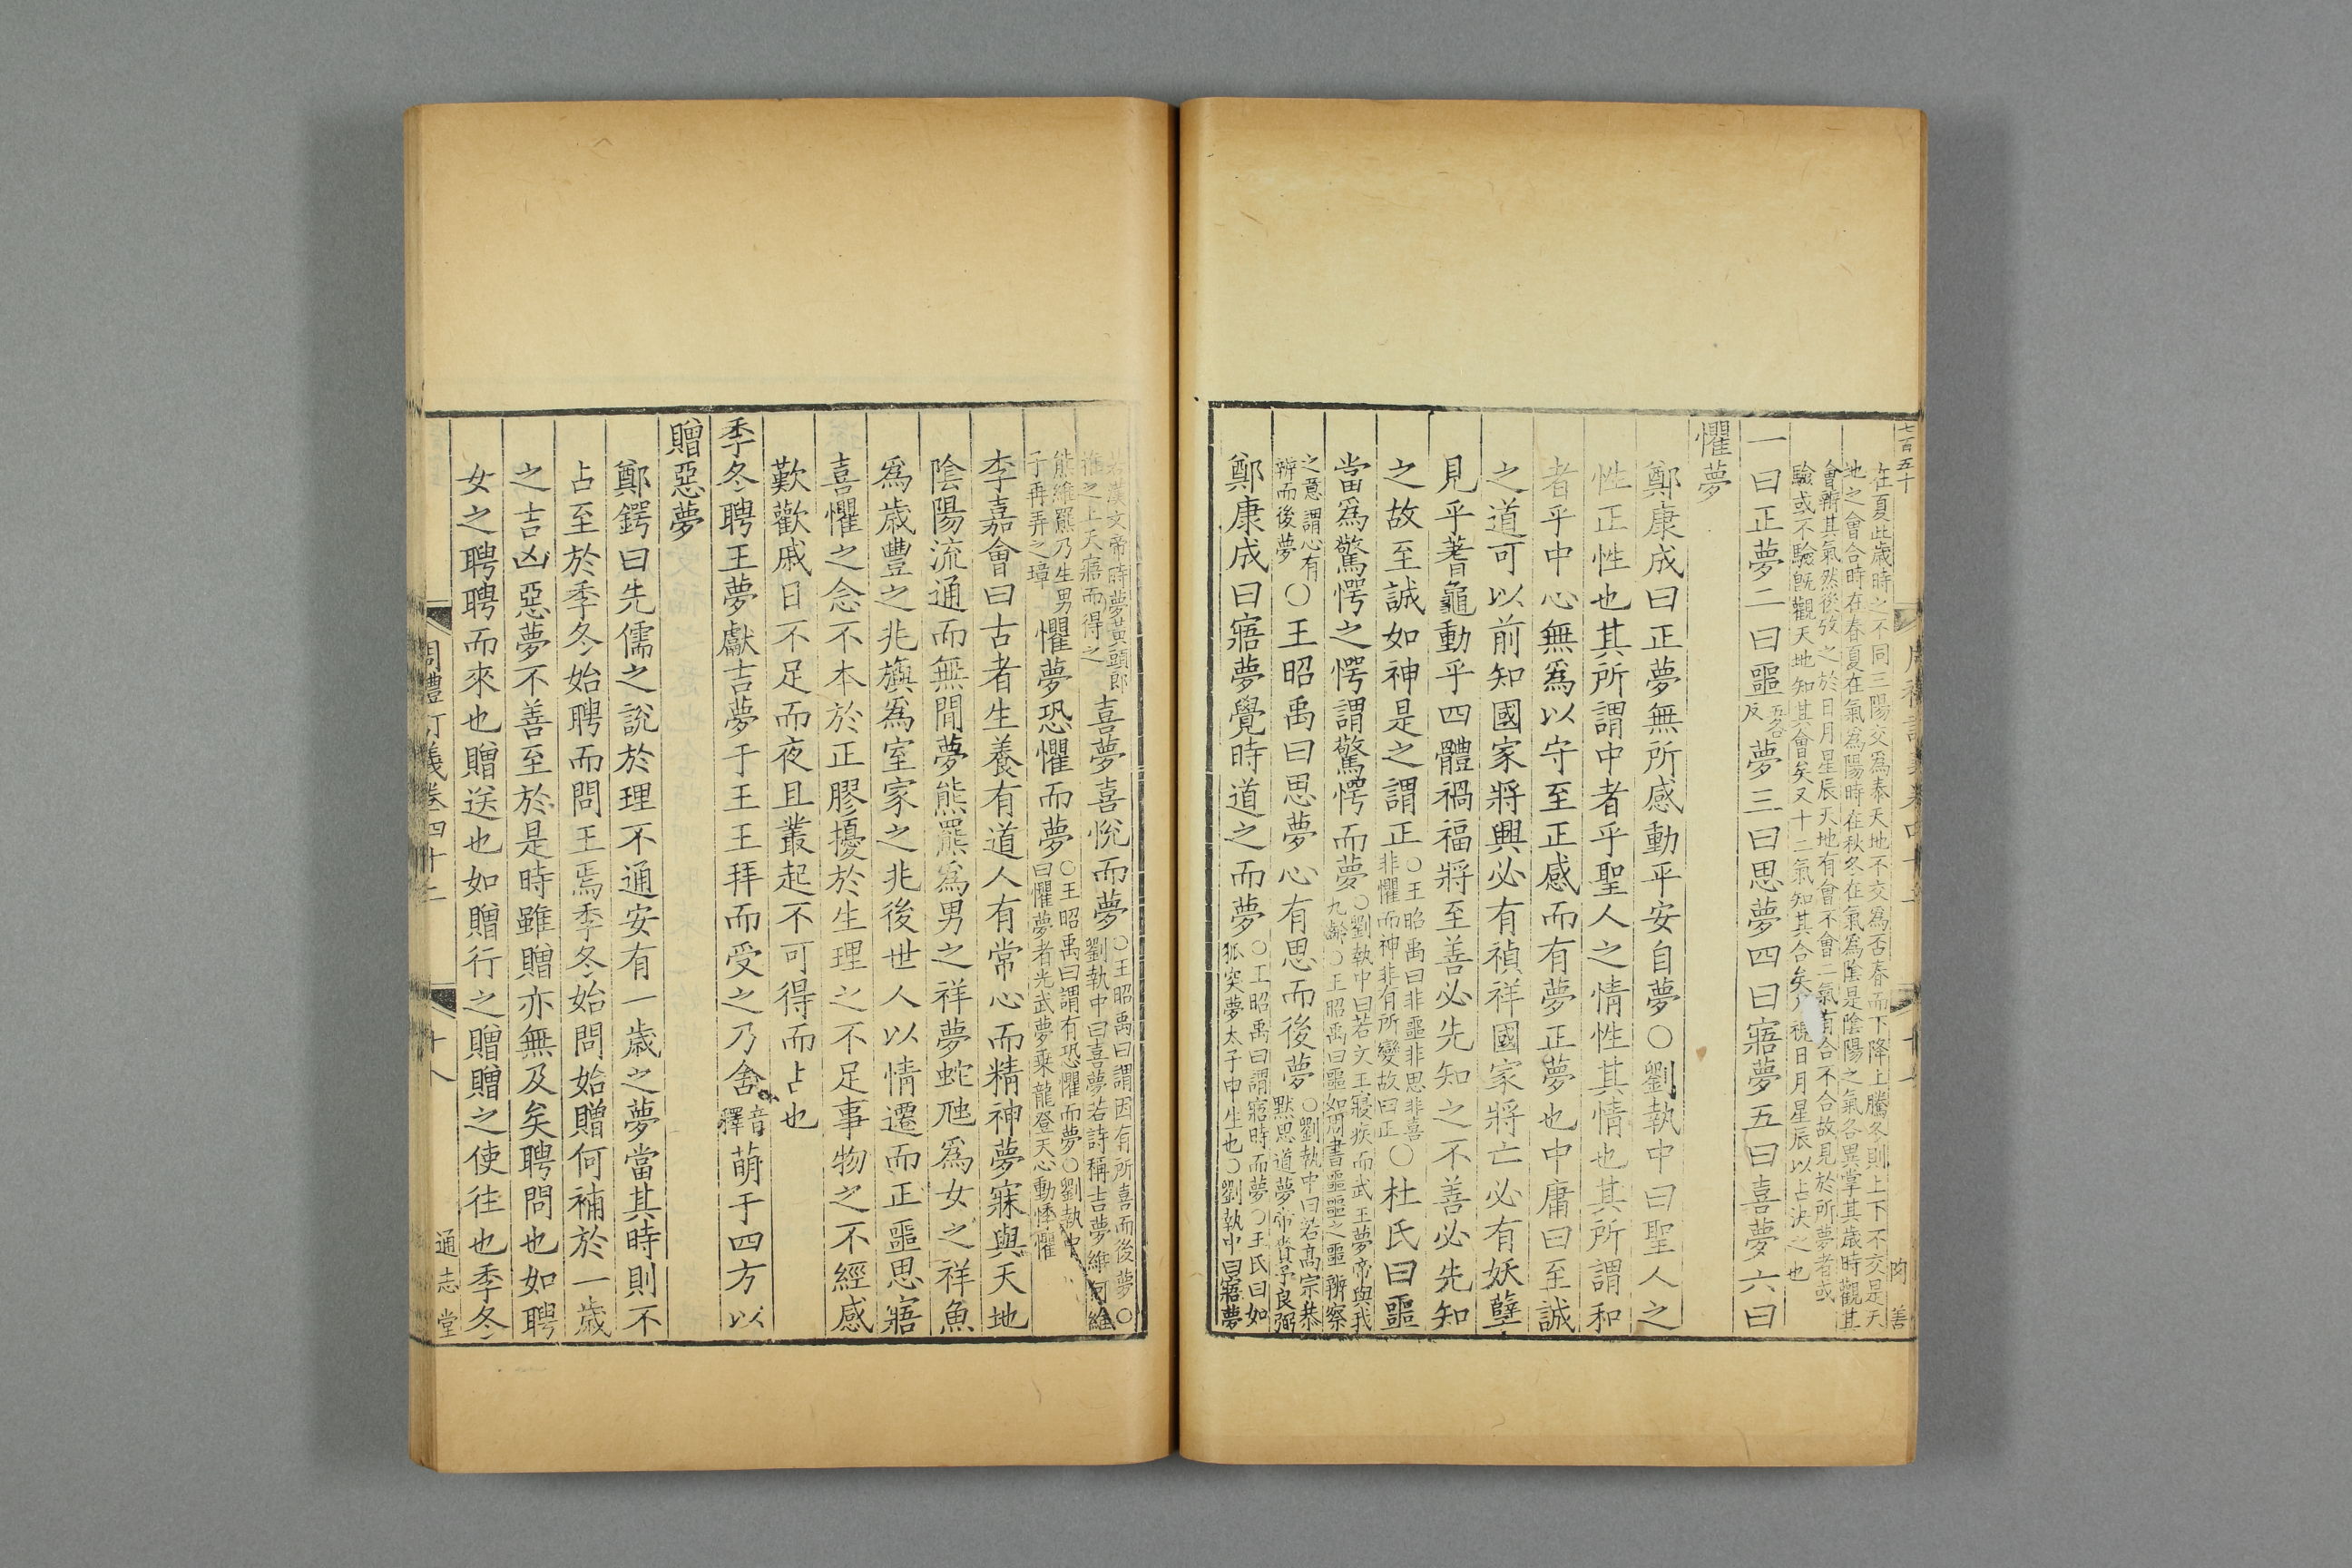 七百五十
在夏此歲時之不同三陽交爲泰天地不交爲否春而下降上騰冬則上下不交是天
地之會合時在春夏在氣爲陽時在秋冬在氣爲陰是陰陽之氣各異掌其歲時觀其
會辨其氣然後攷之於日月星辰天地有會不會二氣有合不合故見於所夢者或
驗或不驗旣觀天地知其會矣又十二氣知其合矣 視日月星辰以占決之也
一曰正夢二曰噩五各反夢三曰思夢四曰寤夢五曰喜夢六曰
懼夢
鄭康成曰正夢無所感動平安自夢○劉執中曰聖人之
性正性也其所謂中者乎聖人之情性其情也其所謂和
者乎中心無爲以守至正感而有夢正夢也中庸曰至誠
之道可以前知國家將興必有禎祥國家將亡必有妖孽
見乎蓍龜動乎四體禍福將至善必先知之不善必先知
之故至誠如神是之謂正○王昭禹曰非噩非思非喜非懼而神非有所變故曰正○杜氏曰噩
當爲驚愕之愕謂驚愕而夢○劉執中曰若文王寢疾而武王夢帝與我九齡○王昭禹曰噩如周書噩噩之噩辨察
之意謂心有辨而後夢○王昭禹曰思夢心有思而後夢○劉執中曰若高宗恭默思道夢帝賚予良弼
鄭康成曰寤夢覺時道之而夢○王昭禹曰謂寤時而夢○王氏曰如狐突夢太子申生也○劉執中曰寤夢
若漢文帝時夢黃頭郎推之上天寤而得之喜夢喜悅而夢○王昭禹曰謂因有所喜而後夢○劉執中曰喜夢若詩稱吉夢維何維
熊維羆乃生男子再弄之璋懼夢恐懼而夢○王昭禹曰謂有恐懼而夢○劉執中曰懼夢者光武夢乘龍登天心動悸懼
李嘉會曰古者生養有道人有常心而精神夢寐與天地
陰陽流通而無間夢熊羆爲男之祥夢蛇虺爲女之祥魚
爲歲豐之兆旟爲室家之兆後世人以情遷而正噩思寤
喜懼之念不本於正膠擾於生理之不足事物之不經感
歎歡戚日不足而夜且叢起不可得而占也
季冬聘王夢獻吉夢于王王拜而受之乃舍音釋萌于四方以
贈惡夢
鄭鍔曰先儒之說於理不通安有一歲之夢當其時則不
占至於季冬始聘而問王焉季冬始問始贈何補於一歲
之吉凶惡夢不善至於是時雖贈亦無及矣聘問也如聘
女之聘聘而來也贈送也如贈行之贈贈之使往也季冬
周禮訂義卷四十二 十八 通志堂